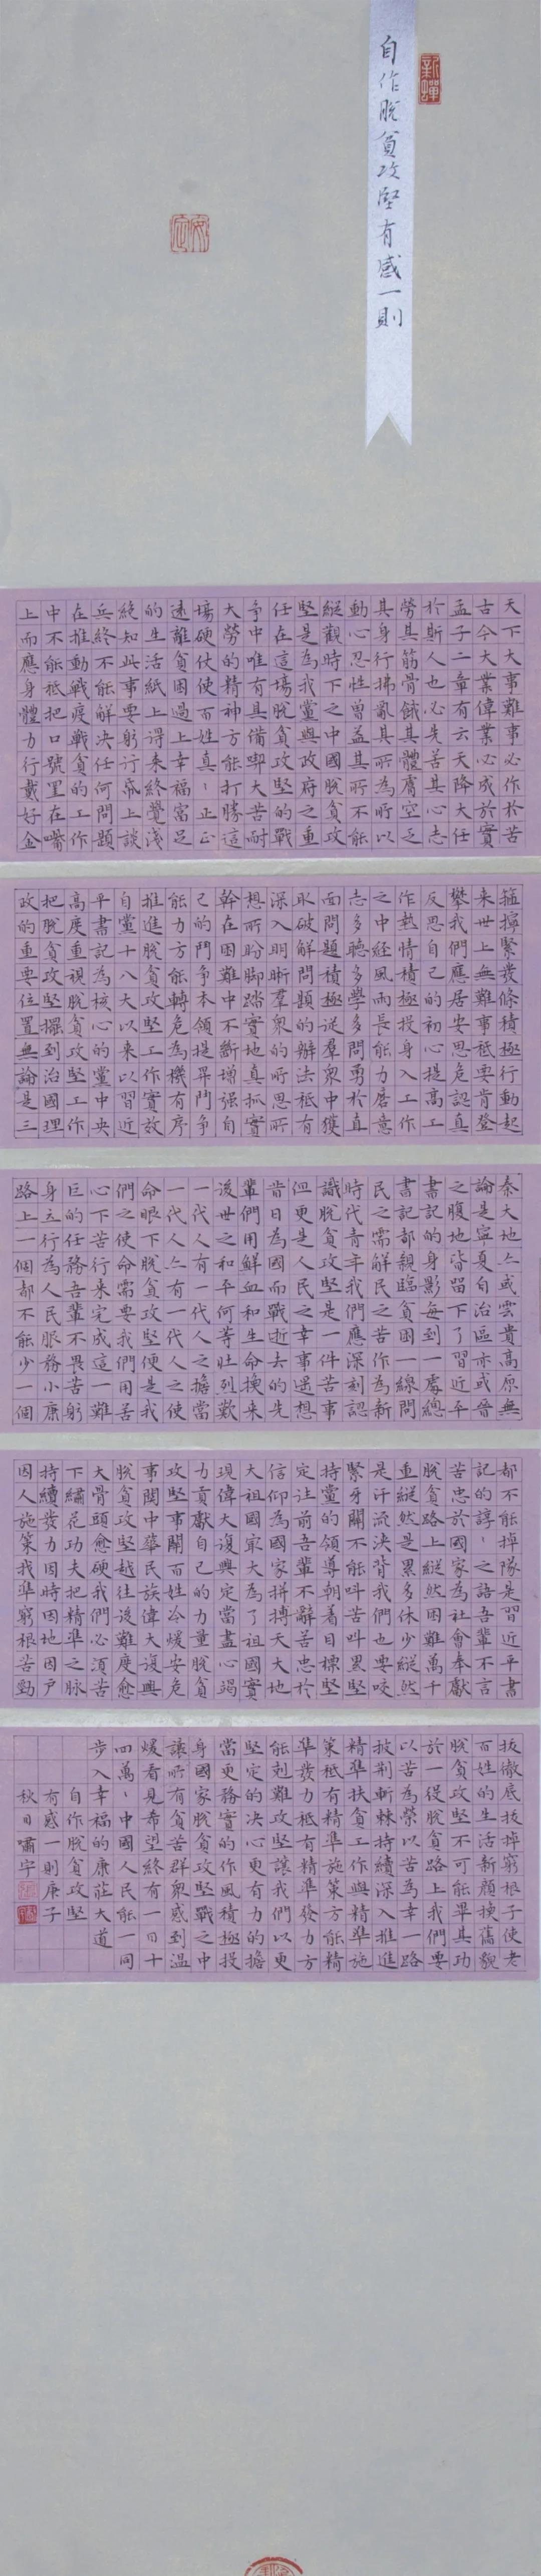 自作脫貧攻堅有感一則
天下大事難事必作於苦
古今大業偉業必成於實
孟子二章有云天降大任
於斯人也必先苦其心志
勞其筋骨餓其體膚空乏
其身行拂亂其所為所以
動心忍性曾益其所不能
縱觀時下之中國脫貧攻
堅是為我黨與政府之重
任在這場脫貧攻堅的戰
爭中唯有具備喫大苦耐
大勞的精神方能打勝這
場硬仗使百姓真丶正正
遠離貧困過上幸福富足
的生活紙上得来終覺淺
絕知此事要躬行紙上談
兵終不能解決任何問題
在推動戰疫戰貧的工作
中不能祗把口號置在嘴
上而應身體力行戴好金
箍擰緊發條積極行動起
来世上無難事祗要肯登
攀我們應居安思危認真
反思自己的初心提高工
作熱情積極投身入工作
之中經風雨長能力磨意
志多聽多學多問勇於直
面問題積極從羣衆中獲
取破解問題的辦法祗有
深入明晰羣衆的所思所
想所盼脚踏實地真抓實
幹在困難中不斷增强自
己的鬥爭本領提昇鬥爭
能力方能轉危為機有序
推進脫貧攻堅工作實放
自黨十八大以来以習近
平書記為核心的黨中央
高度重視脫貧攻堅工作
把脫貧攻堅擺到治國理
政的重要位置無論是三
秦大地亦或雲貴高原無
論是寧夏自治區亦或晉
之腹地皆留下了習近平
書記的身影每到一處總
書記都親臨貧困一線問
民之需解民之苦作為新
時代青年我們應深刻認
識脫貧攻堅是一件苦事
但更是人民之幸事遥想
昔日為國而戰逝去的先
輩們用鮮血和生命換来
後世之和平何等壯烈歎
一代人有一代人之擔當
一代人亦有一代人之使
命眼下脫貧攻堅便是我
們之使命需要我們用苦
心下苦行来完成這一難
巨的任務吾輩不畏苦躬
身立行為人民服務小康
路上一個都不能少一個
都不能掉隊是習近平書
記的諄丶之語吾輩不言
苦忠於國家為社會奉獻
脫貧路上縱然困難萬千
重縱然是累多休少縱然
是汗流浹背我們也要咬
緊牙關不能叫苦叫累堅
持黨的領導朝着目標堅
定往前吾輩不辭苦忠於
信仰為國家拼搏天大地
大祖國最大為了祖國實
現偉大復興定當盡心竭
力貢獻自己的力量脫貧
攻堅事關百姓冷暖安危
事關中華民族偉大復興
脫貧攻堅越往後難度愈
大骨頭愈硬我們必須苦
下繡花功夫把精準之脉
持續發力因時因地因戶
因人施策找準窮根苦勁
拔徹底拔掉窮根子使老
百姓的生活新顏換舊貌
脫貧攻堅不可能畢其功
於一役脫貧路上我們要
以苦為榮以苦為幸一路
披荆斬棘持續深入推進
精準扶貧工作與精準施
策祗有精準施策方能精
準發力祗有精準發力方
能剋難攻堅讓我們以更
堅定的決心更有力的擔
當更務實的作風積極投
身國家脫貧攻堅戰之中
讓所有貧苦群衆感到溫
煖看見希望終有一日十
四萬丶中國人民能一同
步入幸福的康莊大道
自作脫貧攻堅
有感一則庚子
秋日嘯宇